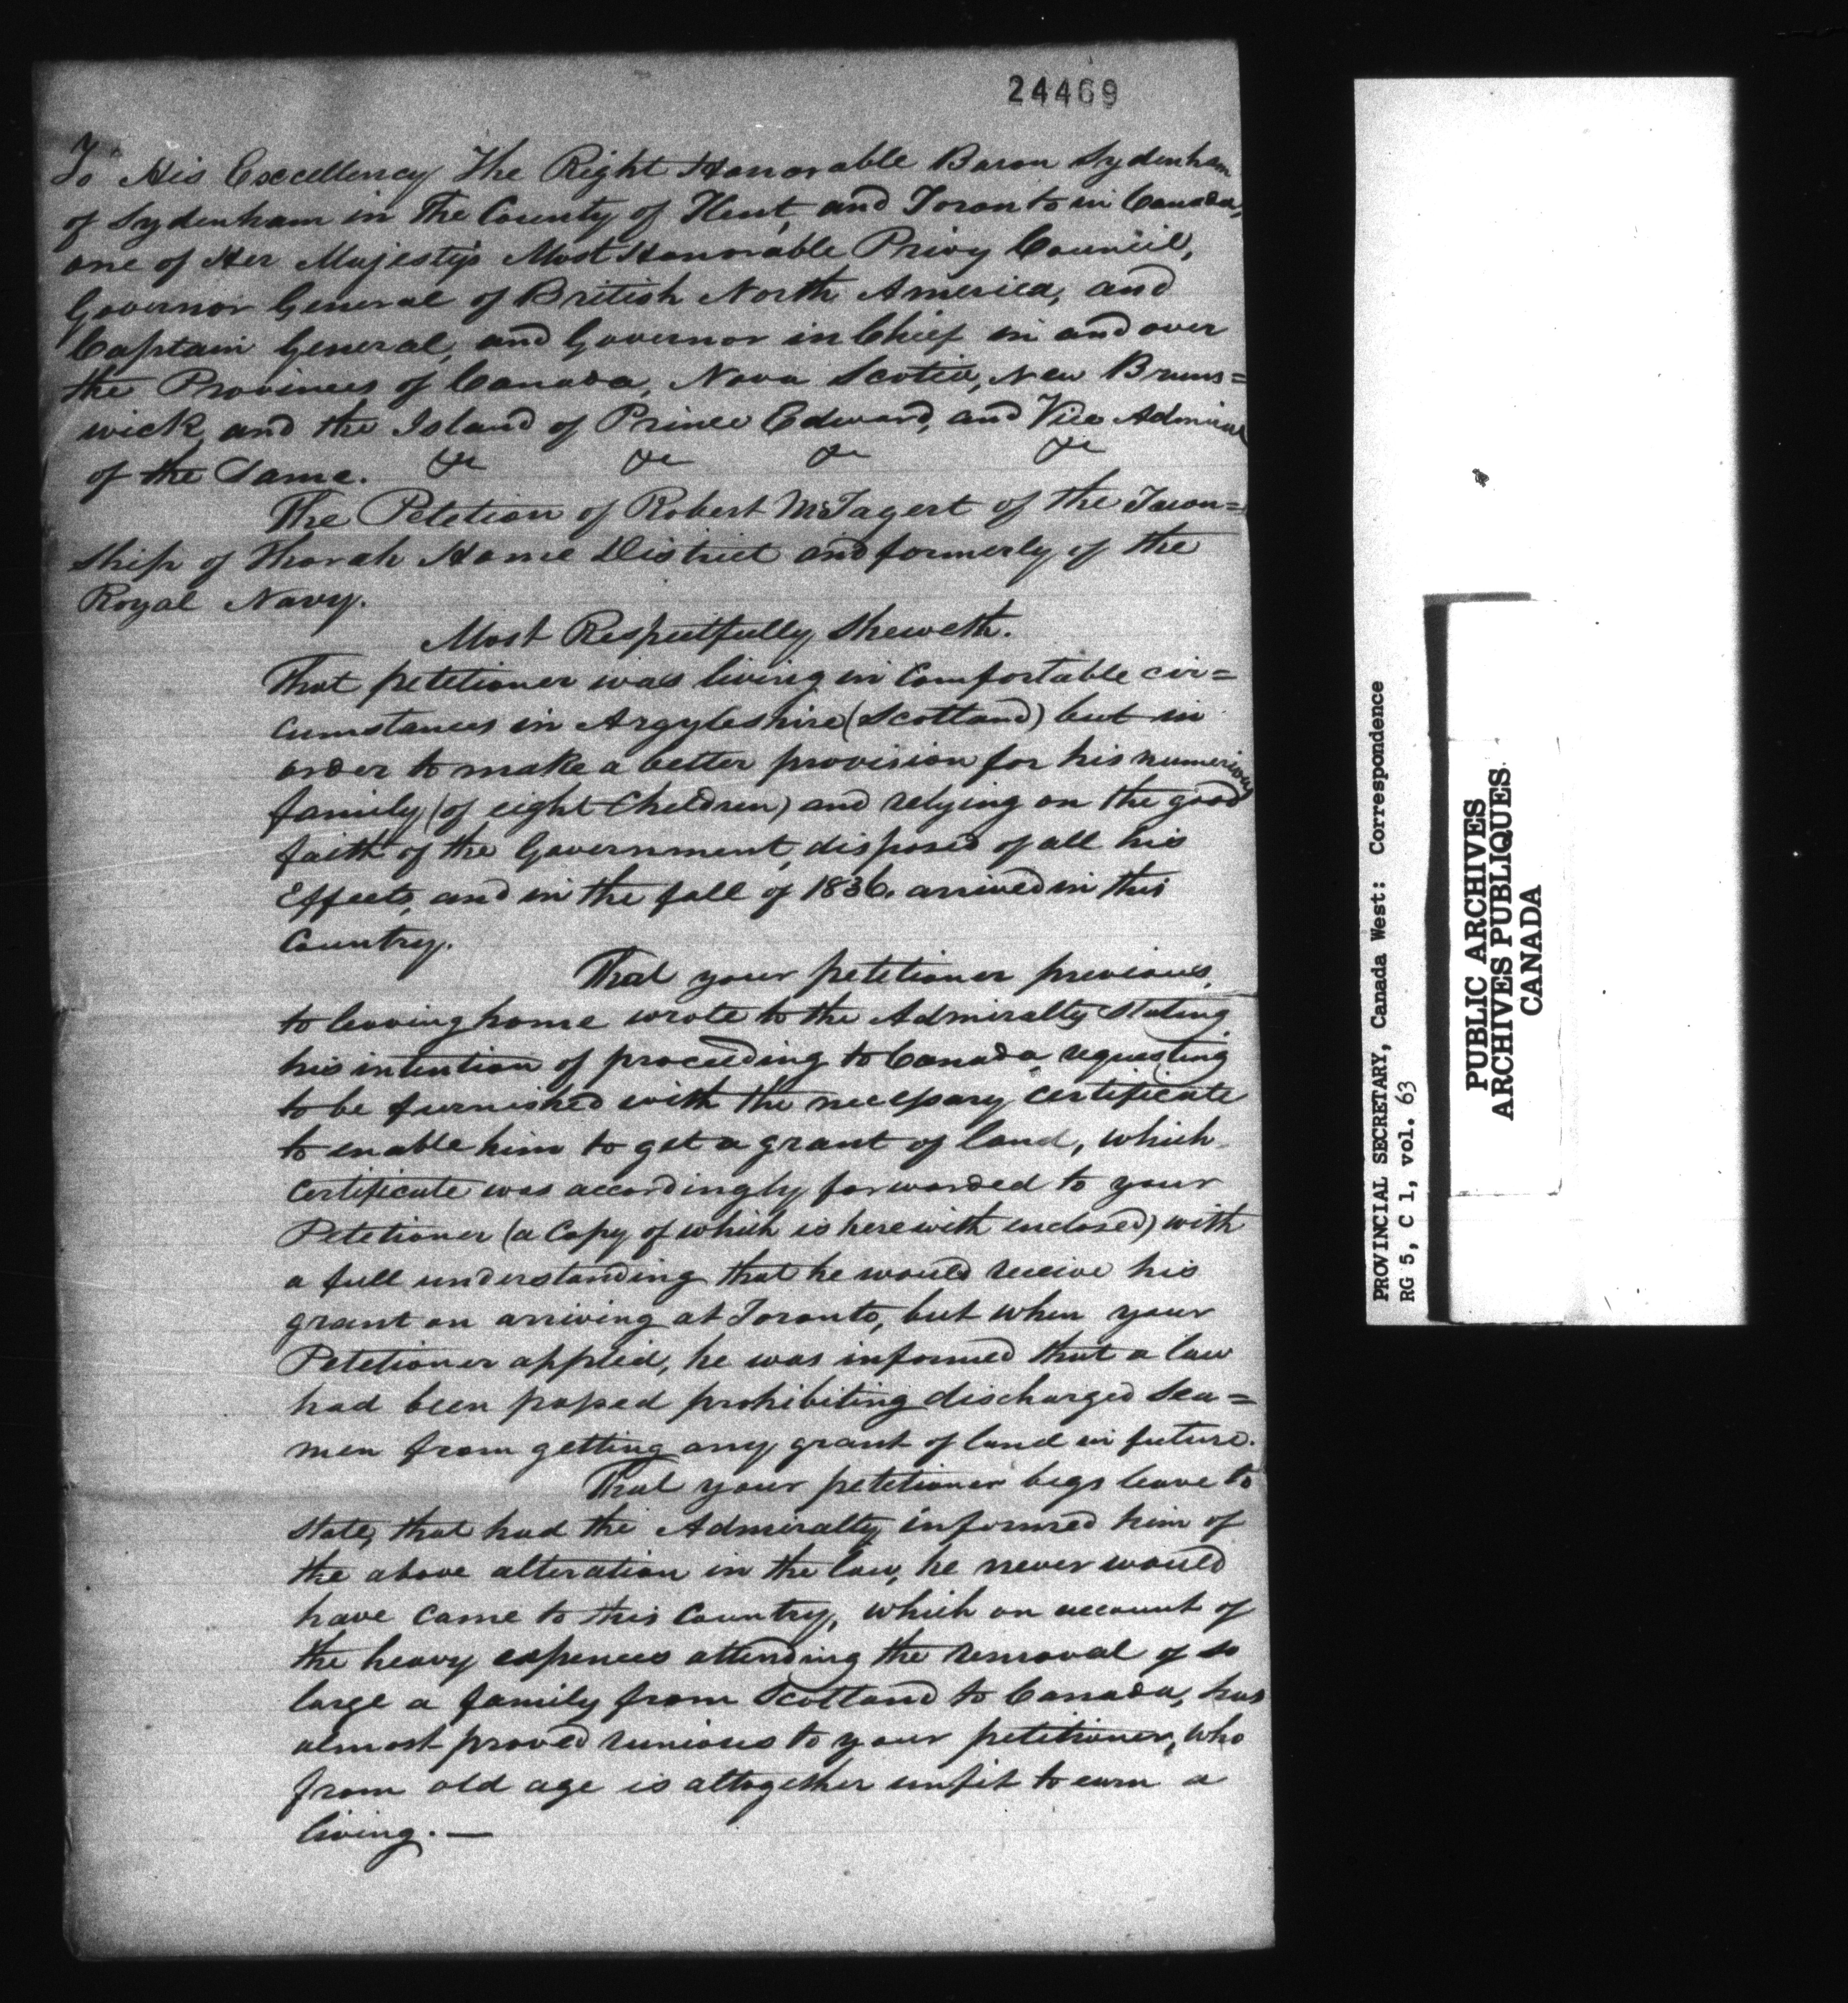 24469
To His Excellency The Right Honorable Baron Sydenham
of Sydenham in The County of Kent, and Toronto in Canada,
one of Her Majesty's Most Honorable Privy Council,
Governor General of British North America, and
Captain General, and Governor in Chief in and over
the Provinces of Canada, Nova Scotia, New Bruns=
wick, and the Island of Prince Edward, and Vice Admiral
of the Same. &c &c &c &c
The Petetion of Robert McTagert of the Town=
ship of Thorah Home District and formerly of the
Royal Navy.
Most Respectfully Sheweth.
That petetioner was living in Comfortable cir=
cumstances in Argyleshire (Scotland) but in
order to make a better provision for his numerious
family (of eight Cheldren) and relying on the good
faith of the Government, disposed of all his
Effects, and in the fall of 1836. arrived in this
Country.
That your petetioner previous,
to leaving home wrote to the Admiralty Stating
his intention of proceeding to Canada requesting
to be furnished with the necessary Certificate
to enable him to get a grant of land, which
Certificate was accordingly forwarded to your
Petetioner (a Copy of which is herewith enclosed) with
a full understanding that he would receive his
grant on arriving at Toronto, but when your
Petetioner applied, he was informed that a law
had been passed prohibiting discharged Sea=
men from getting any grant of land in future.
That your petetioner begs leave to
State, that had the Admiralty informed him of
the above alteration in the law, he never would
have came to this Country, which on account of
the heavy expences attending the removal of so
large a family from Scotland to Canada, has
almost proved runious to your petetioner, who
from old age is altogether unfit to earn a
living. —
PROVINCIAL SECRETARY, Canada West: Correspondence
RG 5, C 1, vol. 63
PUBLIC ARCHIVES
ARCHIVES PUBLIQUES
CANADA